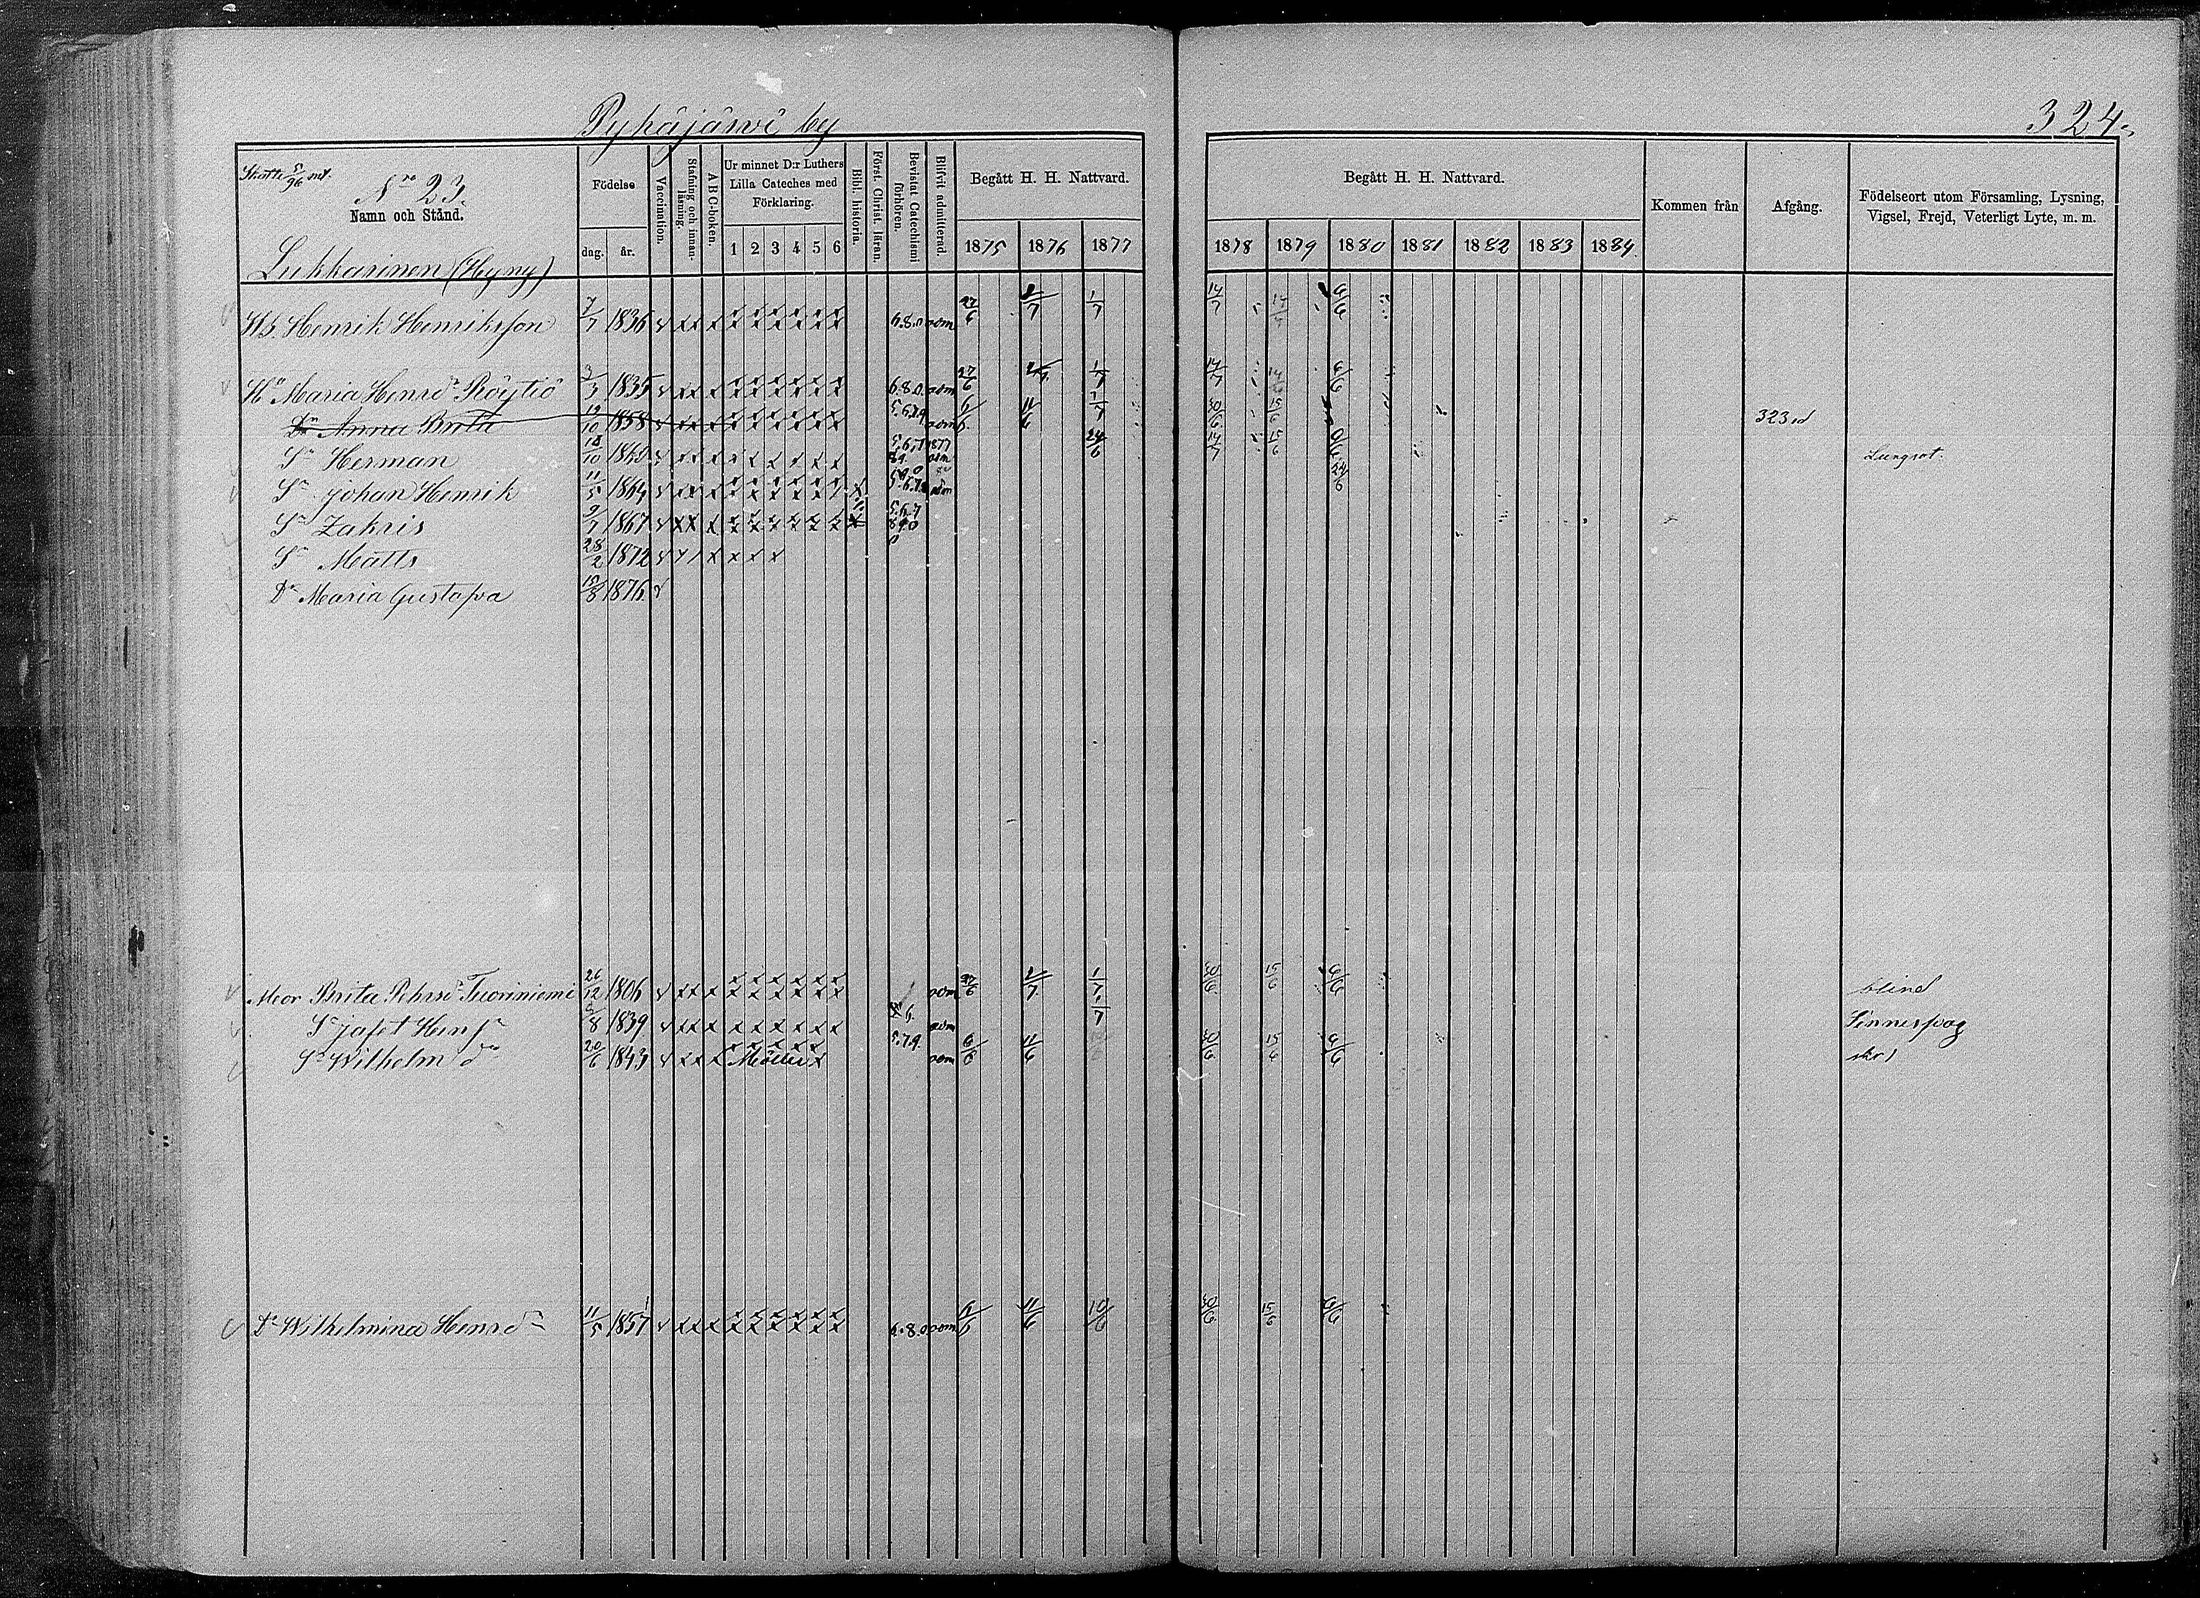 Pyhäjärvi by
324.
Skatte 5/96 mt.
N:ro 23.
Namn och Stånd.
Födelse
dag. år.
Vaccination.
Stafning och innanläsning.
A B C-boken.
Ur minnet D:r Luthers Lilla Cateches med Förklaring.
1 2 3 4 5 6
Bibl. historia.
Först. Christ. läran.
Bevistat Catechismi förhören.
Blifvit admitterad.
Begått H. H. Nattvard.
1875 1876 1877
Begått H. H. Nattvard.
1878 1879 1880 1881 1882 1883 1884
Kommen från
Afgång.
Födelseort utom Församling, Lysning, Vigsel, Frejd, Veterligt Lyte, m. m.
Lukkarinen (Hyny)
Hb. Henrik Henriksson 7/7 1836 6.8.0 adm 27/6 2/7 1/7 14/7 14/6 6/6
Hu Maria Henrsdr Röytiö 3/3 1835 6.8.0. adm 27/6 2/7 1/7 14/7 14/6 6/6
Dr Anna Brita 19/10 1858 adm 6/6 11/6 1/7 30/6 15/6 323
Sn Herman 18/10 1860 5.6.7 1877 adm 24/6 14/7 15/6 Lungsot.
Sn Johan Henrik 11/5 1864 adm 24/6
Sn Zakris 9/7 1867 5.6.7 8.9.0
Sn Matts 28/2 1872 0
Dr Maria Gustafva 15/8 1876
Mor Brita Pehrsdr Tuoriniemi 26/12 1806 adm 27/6 2/7 1/7 30/6 15/6 6/6 blind
Sn Jafet Hensn 5/8 1839 adm 1/7 Sinnessvag
Sn Wilhelm dn 20/6 1843 5.7.9. adm 6/6 11/6 30/6 15/6 6/6
Dr Wilhelmina Henrsdr 11/5 1851 6.8.0 adm 6/6 11/6 10/6 30/6 15/6 6/6